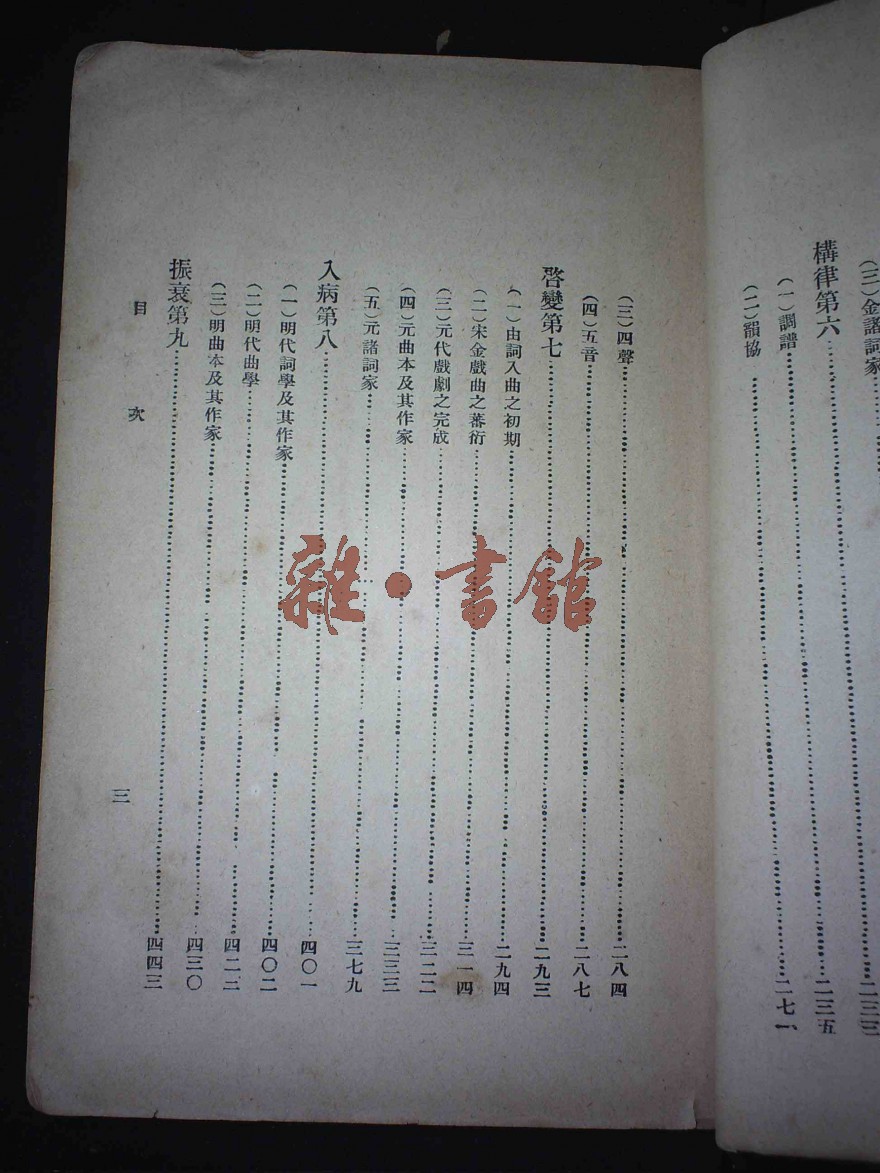 (三)金諸詞家
構律第六……二三三
(一)調譜……二三五
(二)韻協……二七一
(三)四聲……二八四
(四)五音……二八七
啓變第七……二九三
(一)由詞入曲之初期……二九四
(二)宋金戲曲之蕃衍……三一四
(三)元代戲劇之完成……三二二
(四)元曲本及其作家……三三三
(五)元諸詞家……三七九
入病第八……四〇一
(一)明代詞學及其作家……四〇二
(二)明代曲學……四二三
(三)明曲本及其作家……四三〇
振衰第九……四四三
目次
三
雜·書館